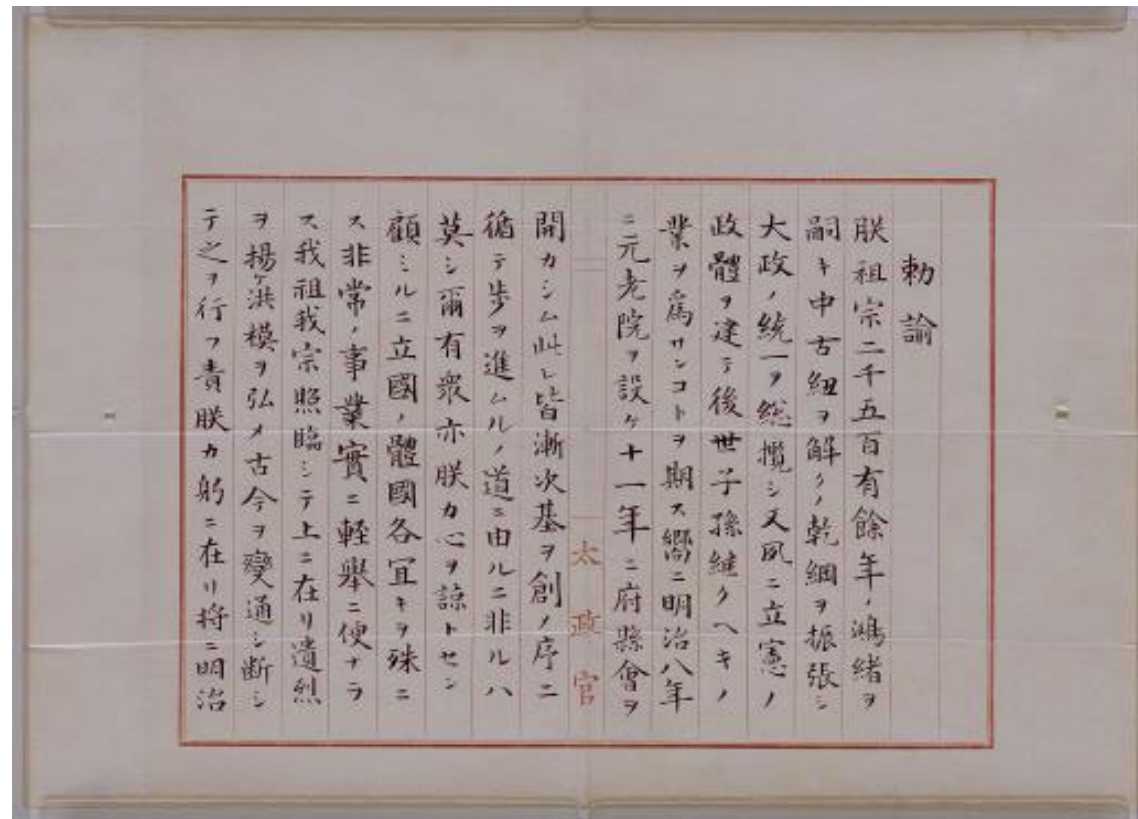 勅諭
朕祖宗二千五百有餘年ノ鴻緒ヲ
嗣キ中古紐ヲ解クノ乾綱ヲ振張シ
大政ノ統一ヲ総攬シ又夙ニ立憲ノ
政體ヲ建テ後世子孫継クヘキノ
業ヲ為サンコトヲ期ス嚮ニ明治八年
ニ元老院ヲ設ケ十一年ニ府縣會ヲ
太政官
開カシム此レ皆漸次基ヲ創メ序ニ
循テ歩ヲ進ムルノ道ニ由ルニ非ルハ
莫シ爾有衆亦朕カ心ヲ諒トセン
顧ミルニ立國ノ體國各宜キヲ殊ニ
ス非常ノ事業實ニ軽舉ニ便ナラ
ス我祖我宗照臨シテ上ニ在リ遺烈
ヲ揚ケ洪模ヲ弘メ古今ヲ變通シ断シ
テ之ヲ行フ責朕カ躬ニ在リ将ニ明治